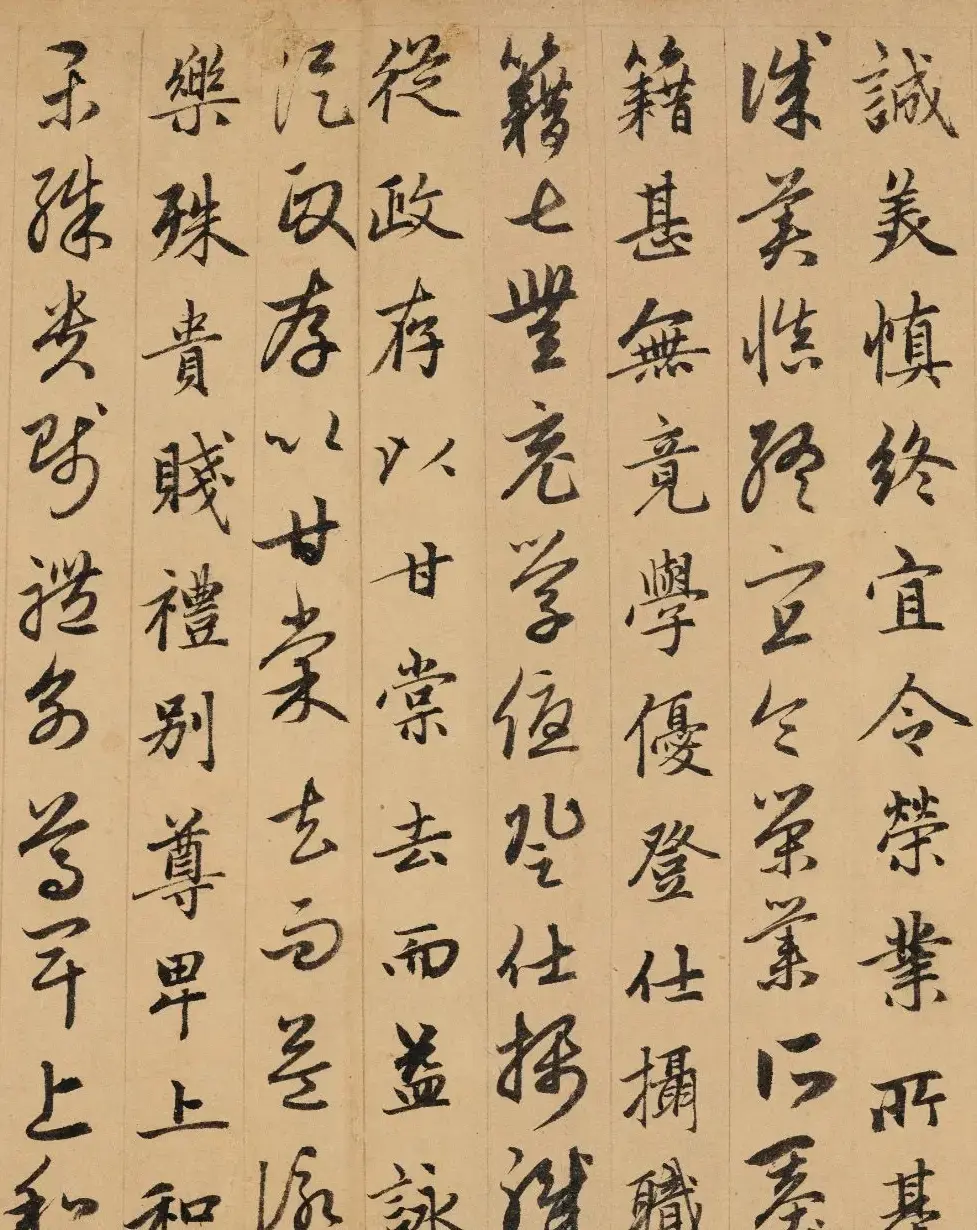 誠美慎終宜令榮業所基
誠美慎終宜令榮業所基
籍甚無竟學優登仕攝職
籍甚無竟學優登仕攝職
從政存以甘棠去而益詠
從政存以甘棠去而益詠
樂殊貴賤禮別尊卑上和
樂殊貴賤禮別尊卑上和